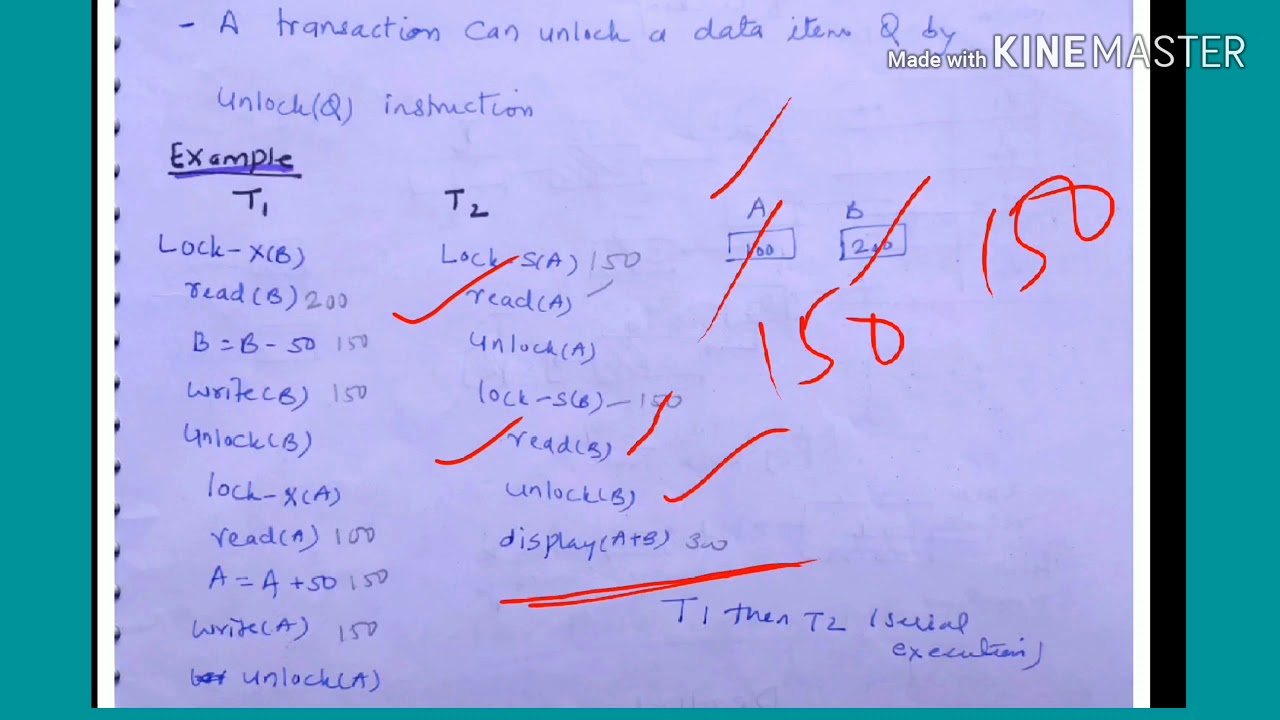 - A transaction can unlock a data item Q by
Made with KINEMASTER
Unlock(Q) instruction
Example
T1 T2
A B
100 200
150
150
Lock-X(B) Lock-S(A) 150
read(B) 200 read(A)
B = B - 50 150 Unlock(A)
write(B) 150 lock-S(B) - 150
Unlock(B) read(B)
lock-X(A) Unlock(B)
read(A) 100 display(A+B) 300
A = A + 50 150
write(A) 150
unlock(A)
T1 then T2 (serial
execution)